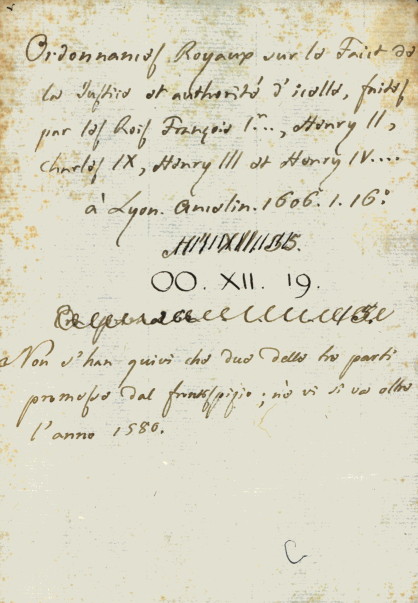 Ordonnances Royaux sur le Faict de
la Justice et authorité d'icelle, faites
par les Rois François I.er..., Henry II,
Charles IX, Henry III et Henry IV....
à Lyon. Ancelin. 1606. 1. 16.o
OO. XII. 19.
Non s'han quivi che due delle tre parti
promesse dal frontespizio; nè vi si va oltre
l'anno 1580.